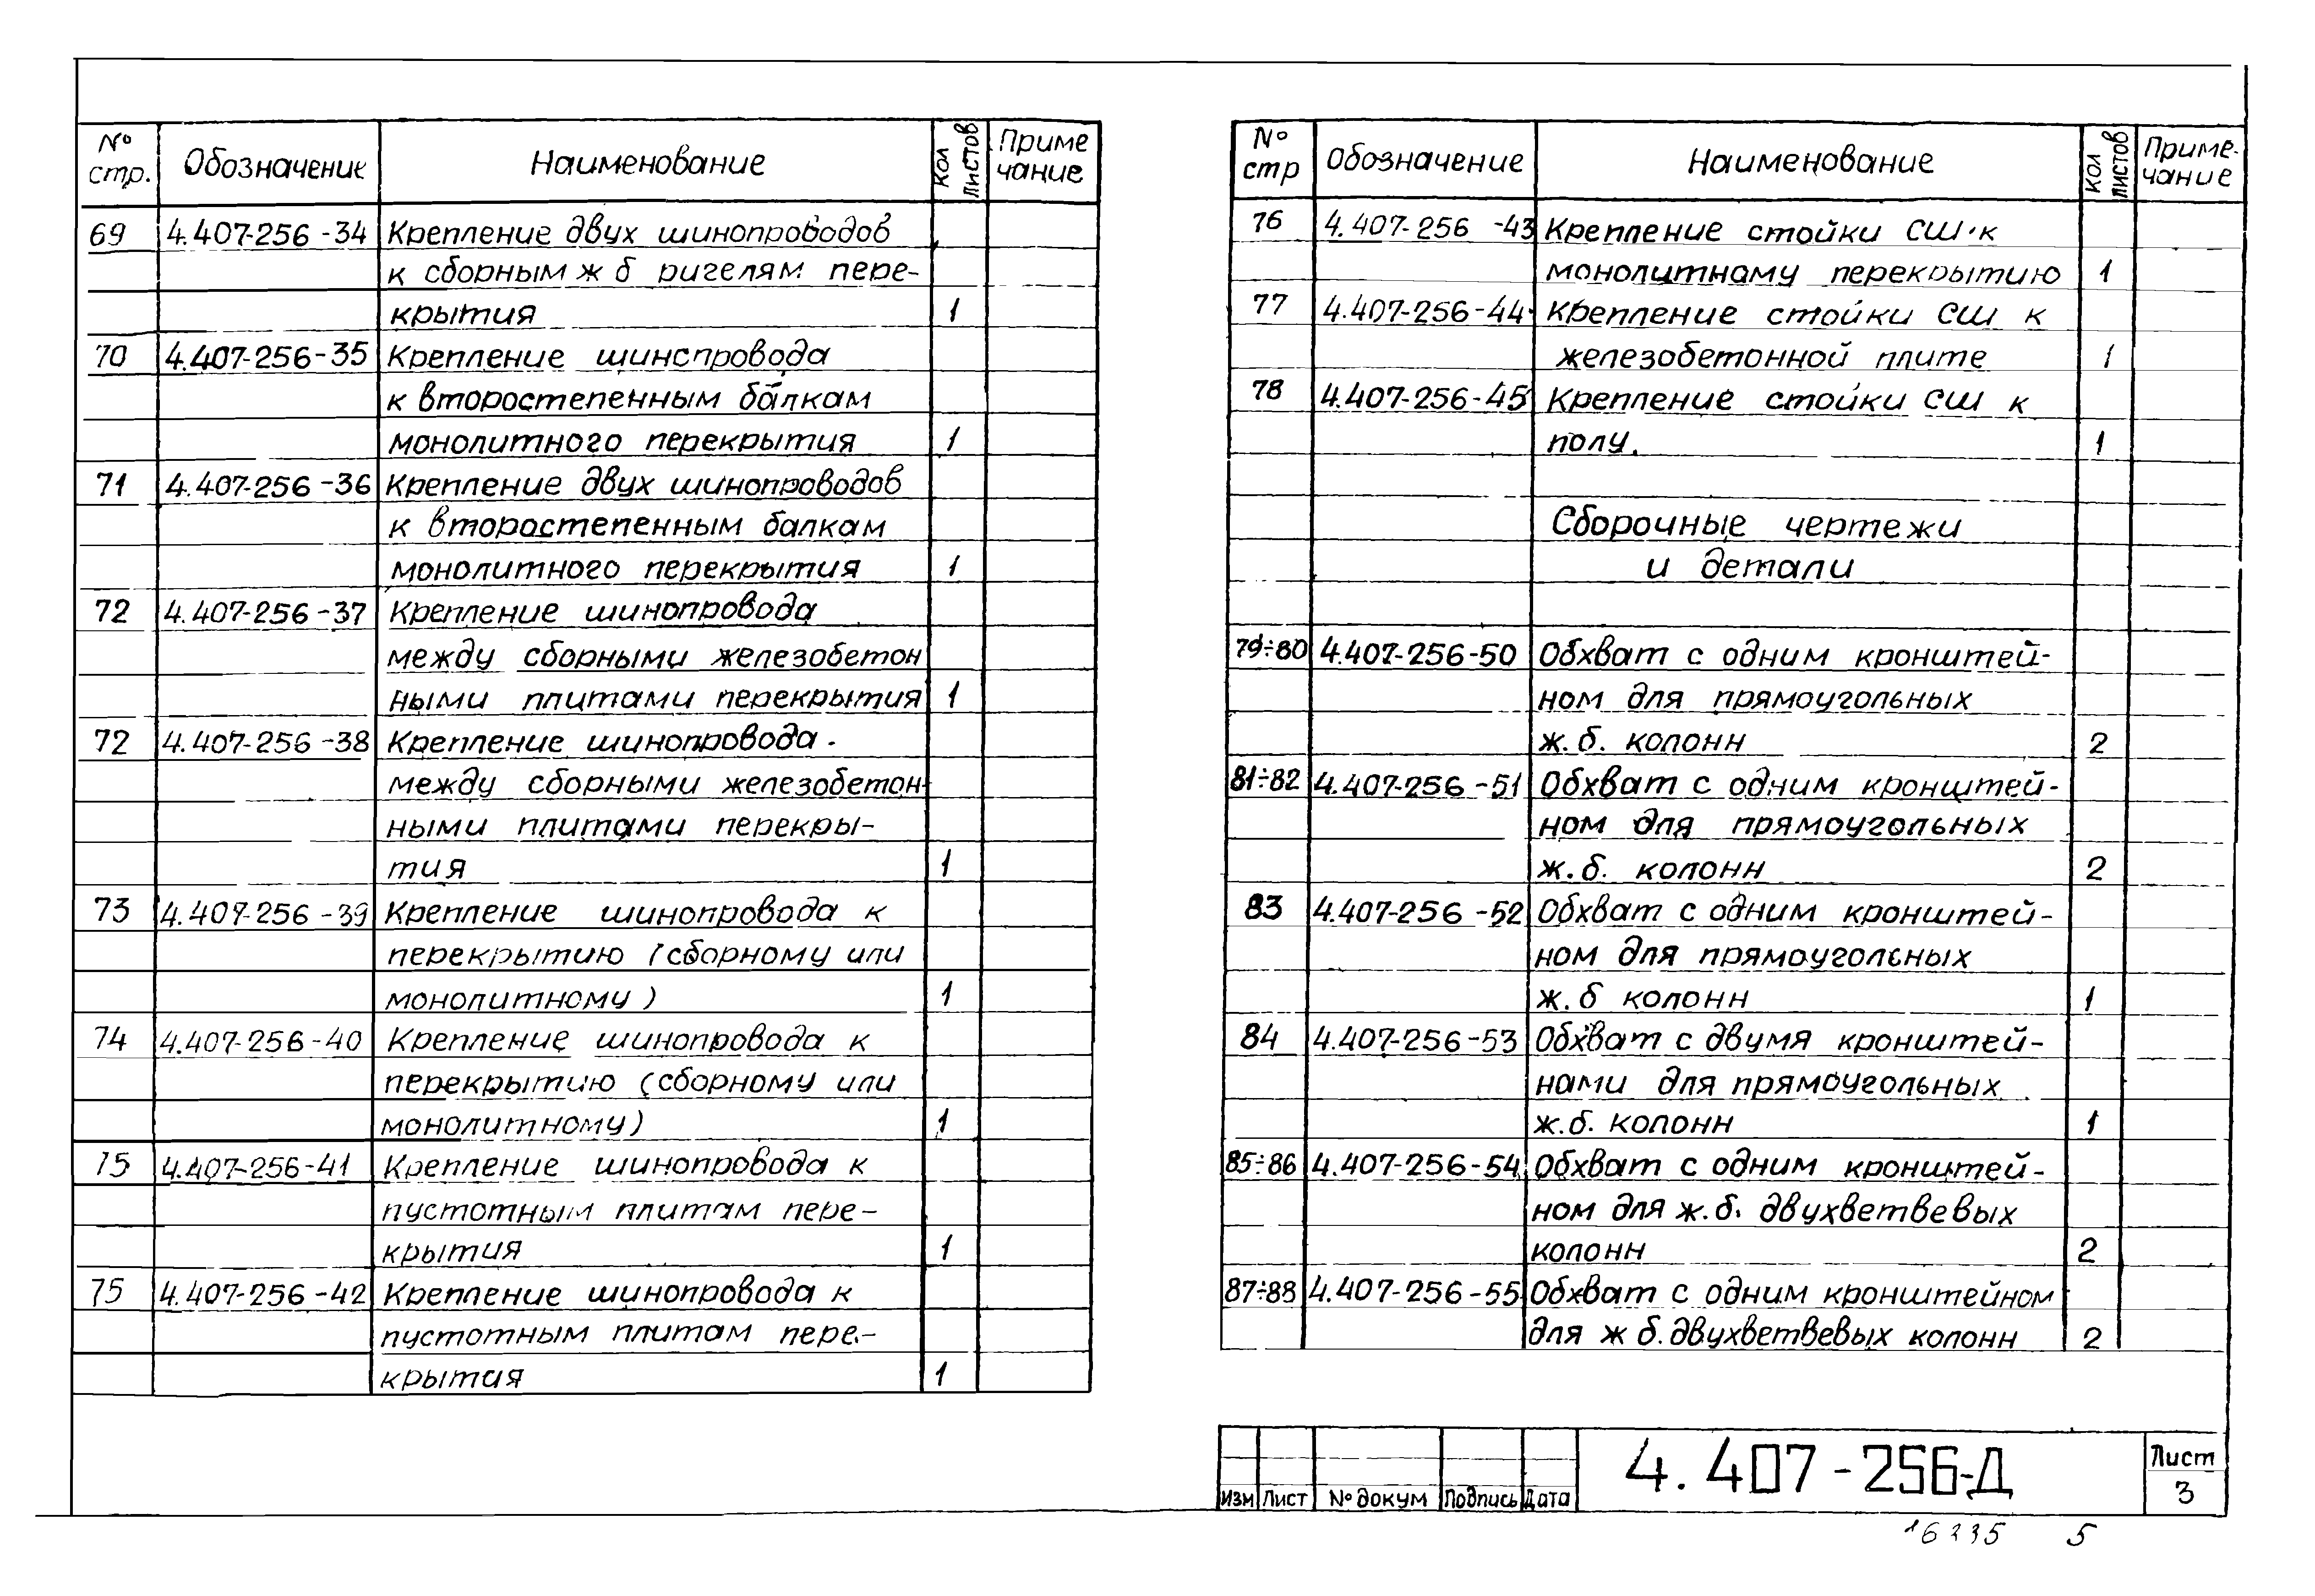 № стр. Обозначение Наименование Кол листов Приме чание
69 4.407-256-34 Крепление двух шинопроводов
к сборным ж б ригелям пере-
крытия 1
70 4.407-256-35 Крепление шинопровода
к второстепенным балкам
монолитного перекрытия 1
71 4.407-256-36 Крепление двух шинопроводов
к второстепенным балкам
монолитного перекрытия 1
72 4.407-256-37 Крепление шинопровода
между сборными железобетон
ными плитами перекрытия 1
72 4.407-256-38 Крепление шинопровода.
между сборными железобетон-
ными плитами перекры-
тия 1
73 4.407-256-39 Крепление шинопровода к
перекрытию (сборному или
монолитному) 1
74 4.407-256-40 Крепление шинопровода к
перекрытию (сборному или
монолитному) 1
75 4.407-256-41 Крепление шинопровода к
пустотным плитам пере-
крытия 1
75 4.407-256-42 Крепление шинопровода к
пустотным плитам пере-
крытия 1
№ стр Обозначение Наименование Кол листов Приме- чание
76 4.407-256-43 Крепление стойки СШ к
монолитному перекрытию 1
77 4.407-256-44 Крепление стойки СШ к
железобетонной плите 1
78 4.407-256-45 Крепление стойки СШ к
полу. 1
Сборочные чертежи
и детали
79÷80 4.407-256-50 Обхват с одним кронштей-
ном для прямоугольных
ж.б. колонн 2
81÷82 4.407-256-51 Обхват с одним кронштей-
ном для прямоугольных
ж.б. колонн 2
83 4.407-256-52 Обхват с одним кронштей-
ном для прямоугольных
ж.б колонн 1
84 4.407-256-53 Обхват с двумя кронштей-
нами для прямоугольных
ж.б. колонн 1
85÷86 4.407-256-54 Обхват с одним кронштей-
ном для ж.б. двухветвевых
колонн 2
87÷88 4.407-256-55 Обхват с одним кронштейном
для ж б. двухветвевых колонн 2
Изм Лист № докум Подпись Дата
4.407-256-Д
Лист
3
16235 5